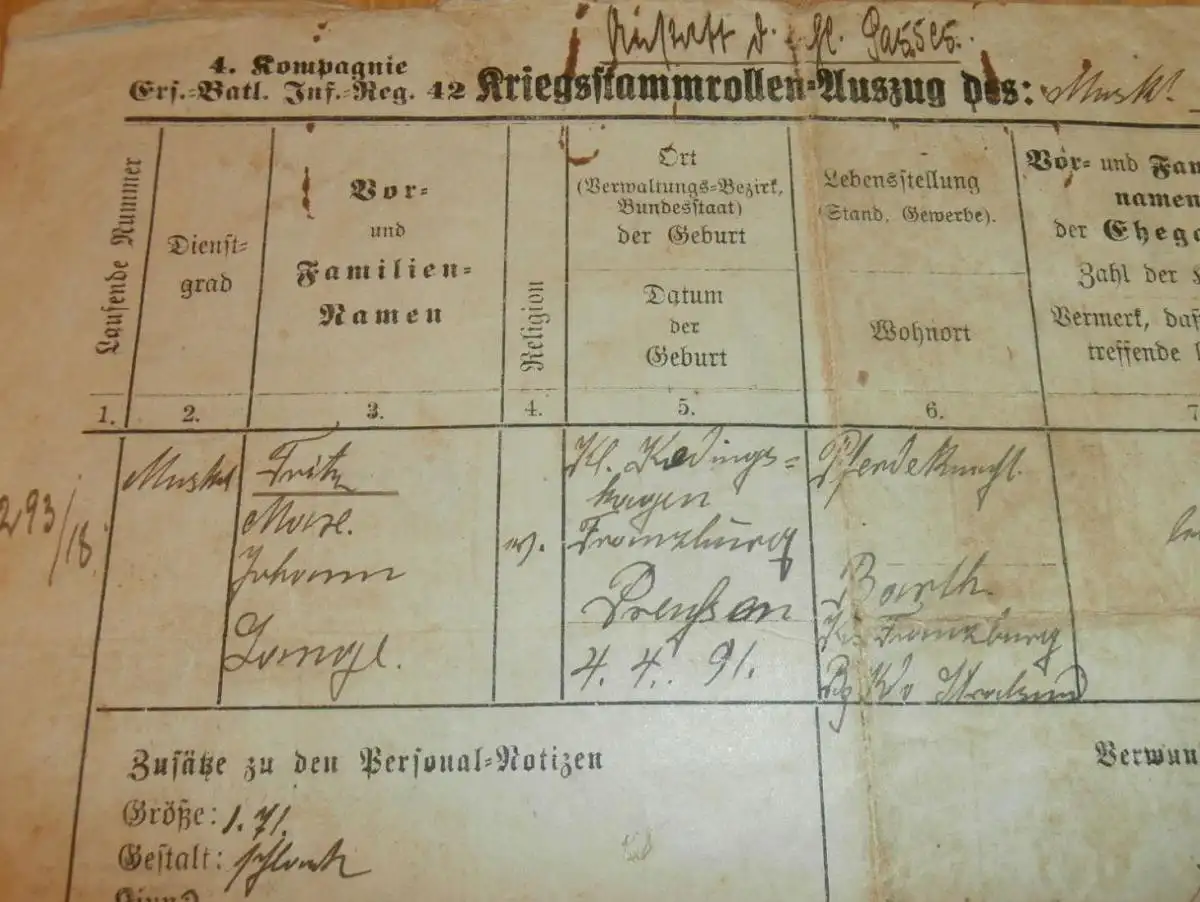 Anstatt d. Passes.
4. Kompagnie
Ers.-Batl. Inf.-Reg. 42 Kriegsstammrollen-Auszug des: Musk.
Laufende Nummer
Dienst-
grad
Vor-
und
Familien-
Namen
Religion
Ort
(Verwaltungs-Bezirk,
Bundesstaat)
der Geburt
Datum
der
Geburt
Lebensstellung
(Stand, Gewerbe).
Wohnort
Vor- und Fam
namen
der Ehega
Zahl der
Vermerk, daß
treffende
1. 2. 3. 4. 5. 6. 7
293/18
Musket
Fritz
Johann
ev.
Kl. Kedings-
hagen
Franzburg
Preußen
4. 4. 91.
Pferdeknecht.
Barth.
Kr. Franzburg
Bz Kdo Stralsund
Zusätze zu den Personal-Notizen
Größe: 1.71.
Gestalt: schlank
Verwun